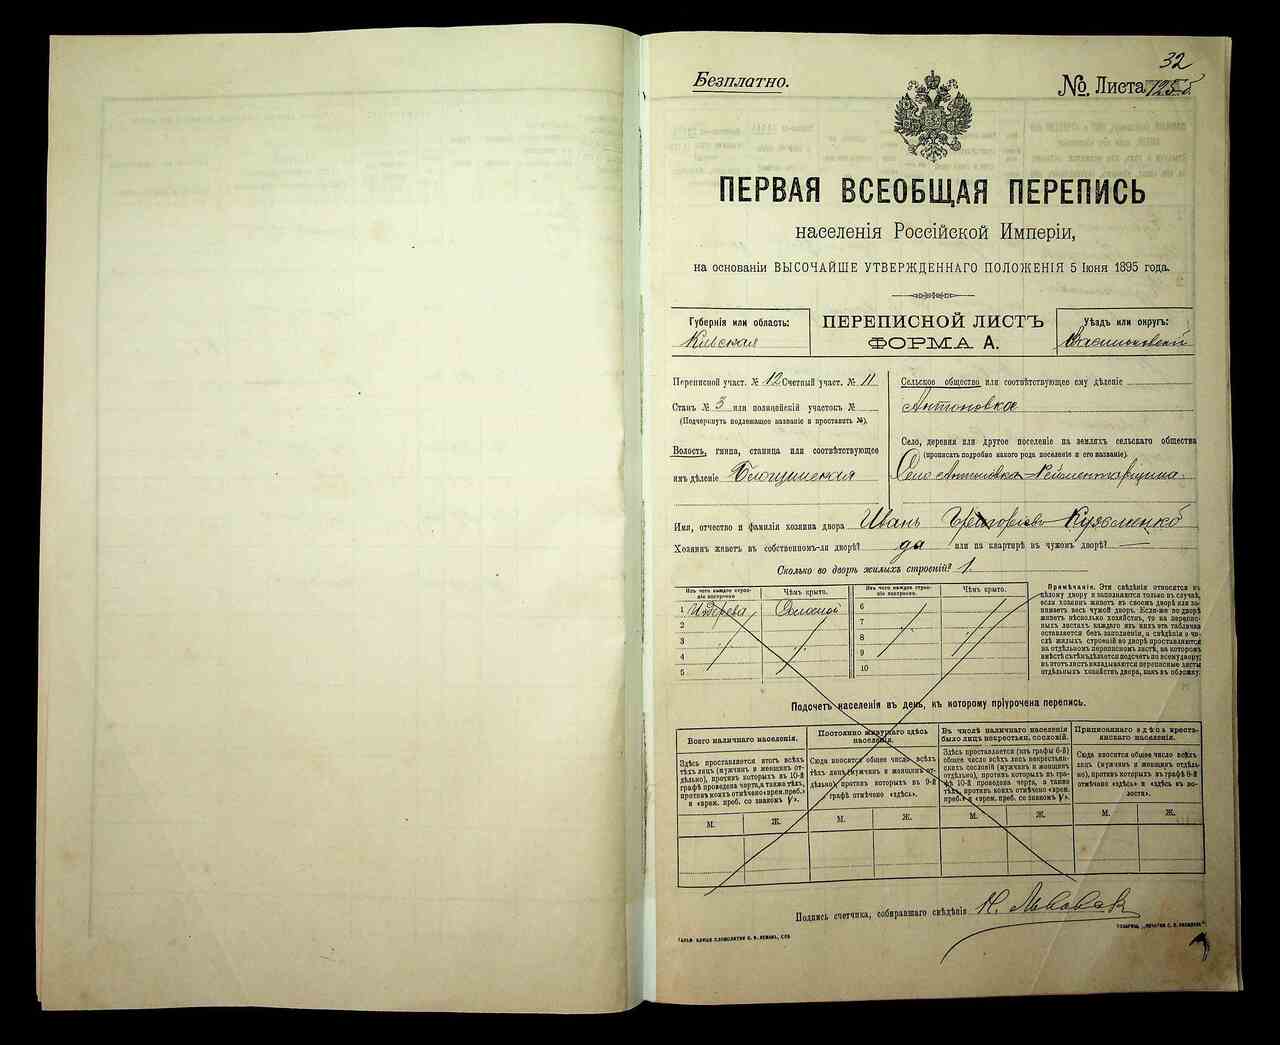 32
Безплатно.
№. Листа 125б
ПЕРВАЯ ВСЕОБЩАЯ ПЕРЕПИСЬ
населенія Россійской Имперіи,
на основаніи ВЫСОЧАЙШЕ УТВЕРЖДЕННАГО ПОЛОЖЕНІЯ 5 Іюня 1895 года.
Губернія или область:
Кіевская
ПЕРЕПИСНОЙ ЛИСТЪ
ФОРМА А.
Уѣздъ или округъ:
Васильковскій
Переписной участ. № 12 Счетный участ. № 11
Станъ № 3 или полицейскій участокъ №
(Подчеркнуть подлежащее названіе и проставить №).
Волость, гмина, станица или соотвѣтствующее
имъ дѣленіе
Сельское общество или соотвѣтствующее ему дѣленіе
Антоновка
Село, деревня или другое поселеніе на земляхъ сельскаго общества
(прописать подробно какого рода поселеніе и его названіе).
Село Антоновка-Рейментарщина
Имя, отчество и фамилія хозяина двора Иванъ Григоріевъ Кузьменко
Хозяинъ живетъ въ собственномъ-ли дворѣ? да или на квартирѣ въ чужомъ дворѣ? —
Сколько во дворѣ жилыхъ строеній? 1.
Изъ чего каждое строеніе построено
Чѣмъ крыто.
Изъ чего каждое строеніе построено.
Чѣмъ крыто.
1 Издерева Соломой
2
3
4
5
6
7
8
9
10
Примѣчаніе. Эти свѣдѣнія относятся къ
цѣлому двору и заполняются только въ случаѣ,
если хозяинъ живетъ въ своемъ дворѣ или занимаетъ
весь чужой дворъ. Если-же во дворѣ
живетъ нѣсколько хозяйствъ, то на переписныхъ
листахъ каждаго изъ нихъ эта табличка
оставляется безъ заполненія, а свѣдѣнія о числѣ
жилыхъ строеній во дворѣ проставляются
на отдѣльномъ переписномъ листѣ, на которомъ
вмѣстѣ съ тѣмъ дѣлается подсчетъ по всему двору;
въ этотъ листъ вкладываются переписные листы
отдѣльныхъ хозяйствъ двора, какъ въ обложку.
Подсчетъ населенія въ день, къ которому пріурочена перепись.
Всего наличнаго населенія.
Здѣсь проставляется итогъ всѣхъ
тѣхъ лицъ (мужчинъ и женщинъ отдѣльно),
противъ которыхъ въ 10-й
графѣ проведена черта, а также тѣхъ,
противъ коихъ отмѣчено «врем. преб.»
и «врем. преб. со знакомъ V».
Постоянно живущаго здѣсь
населенія.
Сюда вносится общее число всѣхъ
тѣхъ лицъ (мужчинъ и женщинъ отдѣльно),
противъ которыхъ въ 9-й
графѣ отмѣчено «здѣсь».
Въ числѣ наличнаго населенія
было лицъ некрестьян. сословій.
Здѣсь проставляется (изъ графы 6-й)
общее число всѣхъ лицъ некрестьянскихъ
сословій (мужчинъ и женщинъ
отдѣльно), противъ которыхъ въ графѣ
10-й проведена черта, а также
тѣхъ, противъ коихъ отмѣчено «врем.
преб.» и «врем. преб. со знакомъ V».
Приписаннаго здѣсь крестьянскаго
населенія.
Сюда вносится общее число всѣхъ
лицъ (мужчинъ и женщинъ отдѣльно),
противъ коихъ въ графѣ 8-й
отмѣчено «здѣсь» и «здѣсь въ волости».
М. Ж. М. Ж. М. Ж. М. Ж.
Подпись счетчика, собиравшаго свѣдѣнія